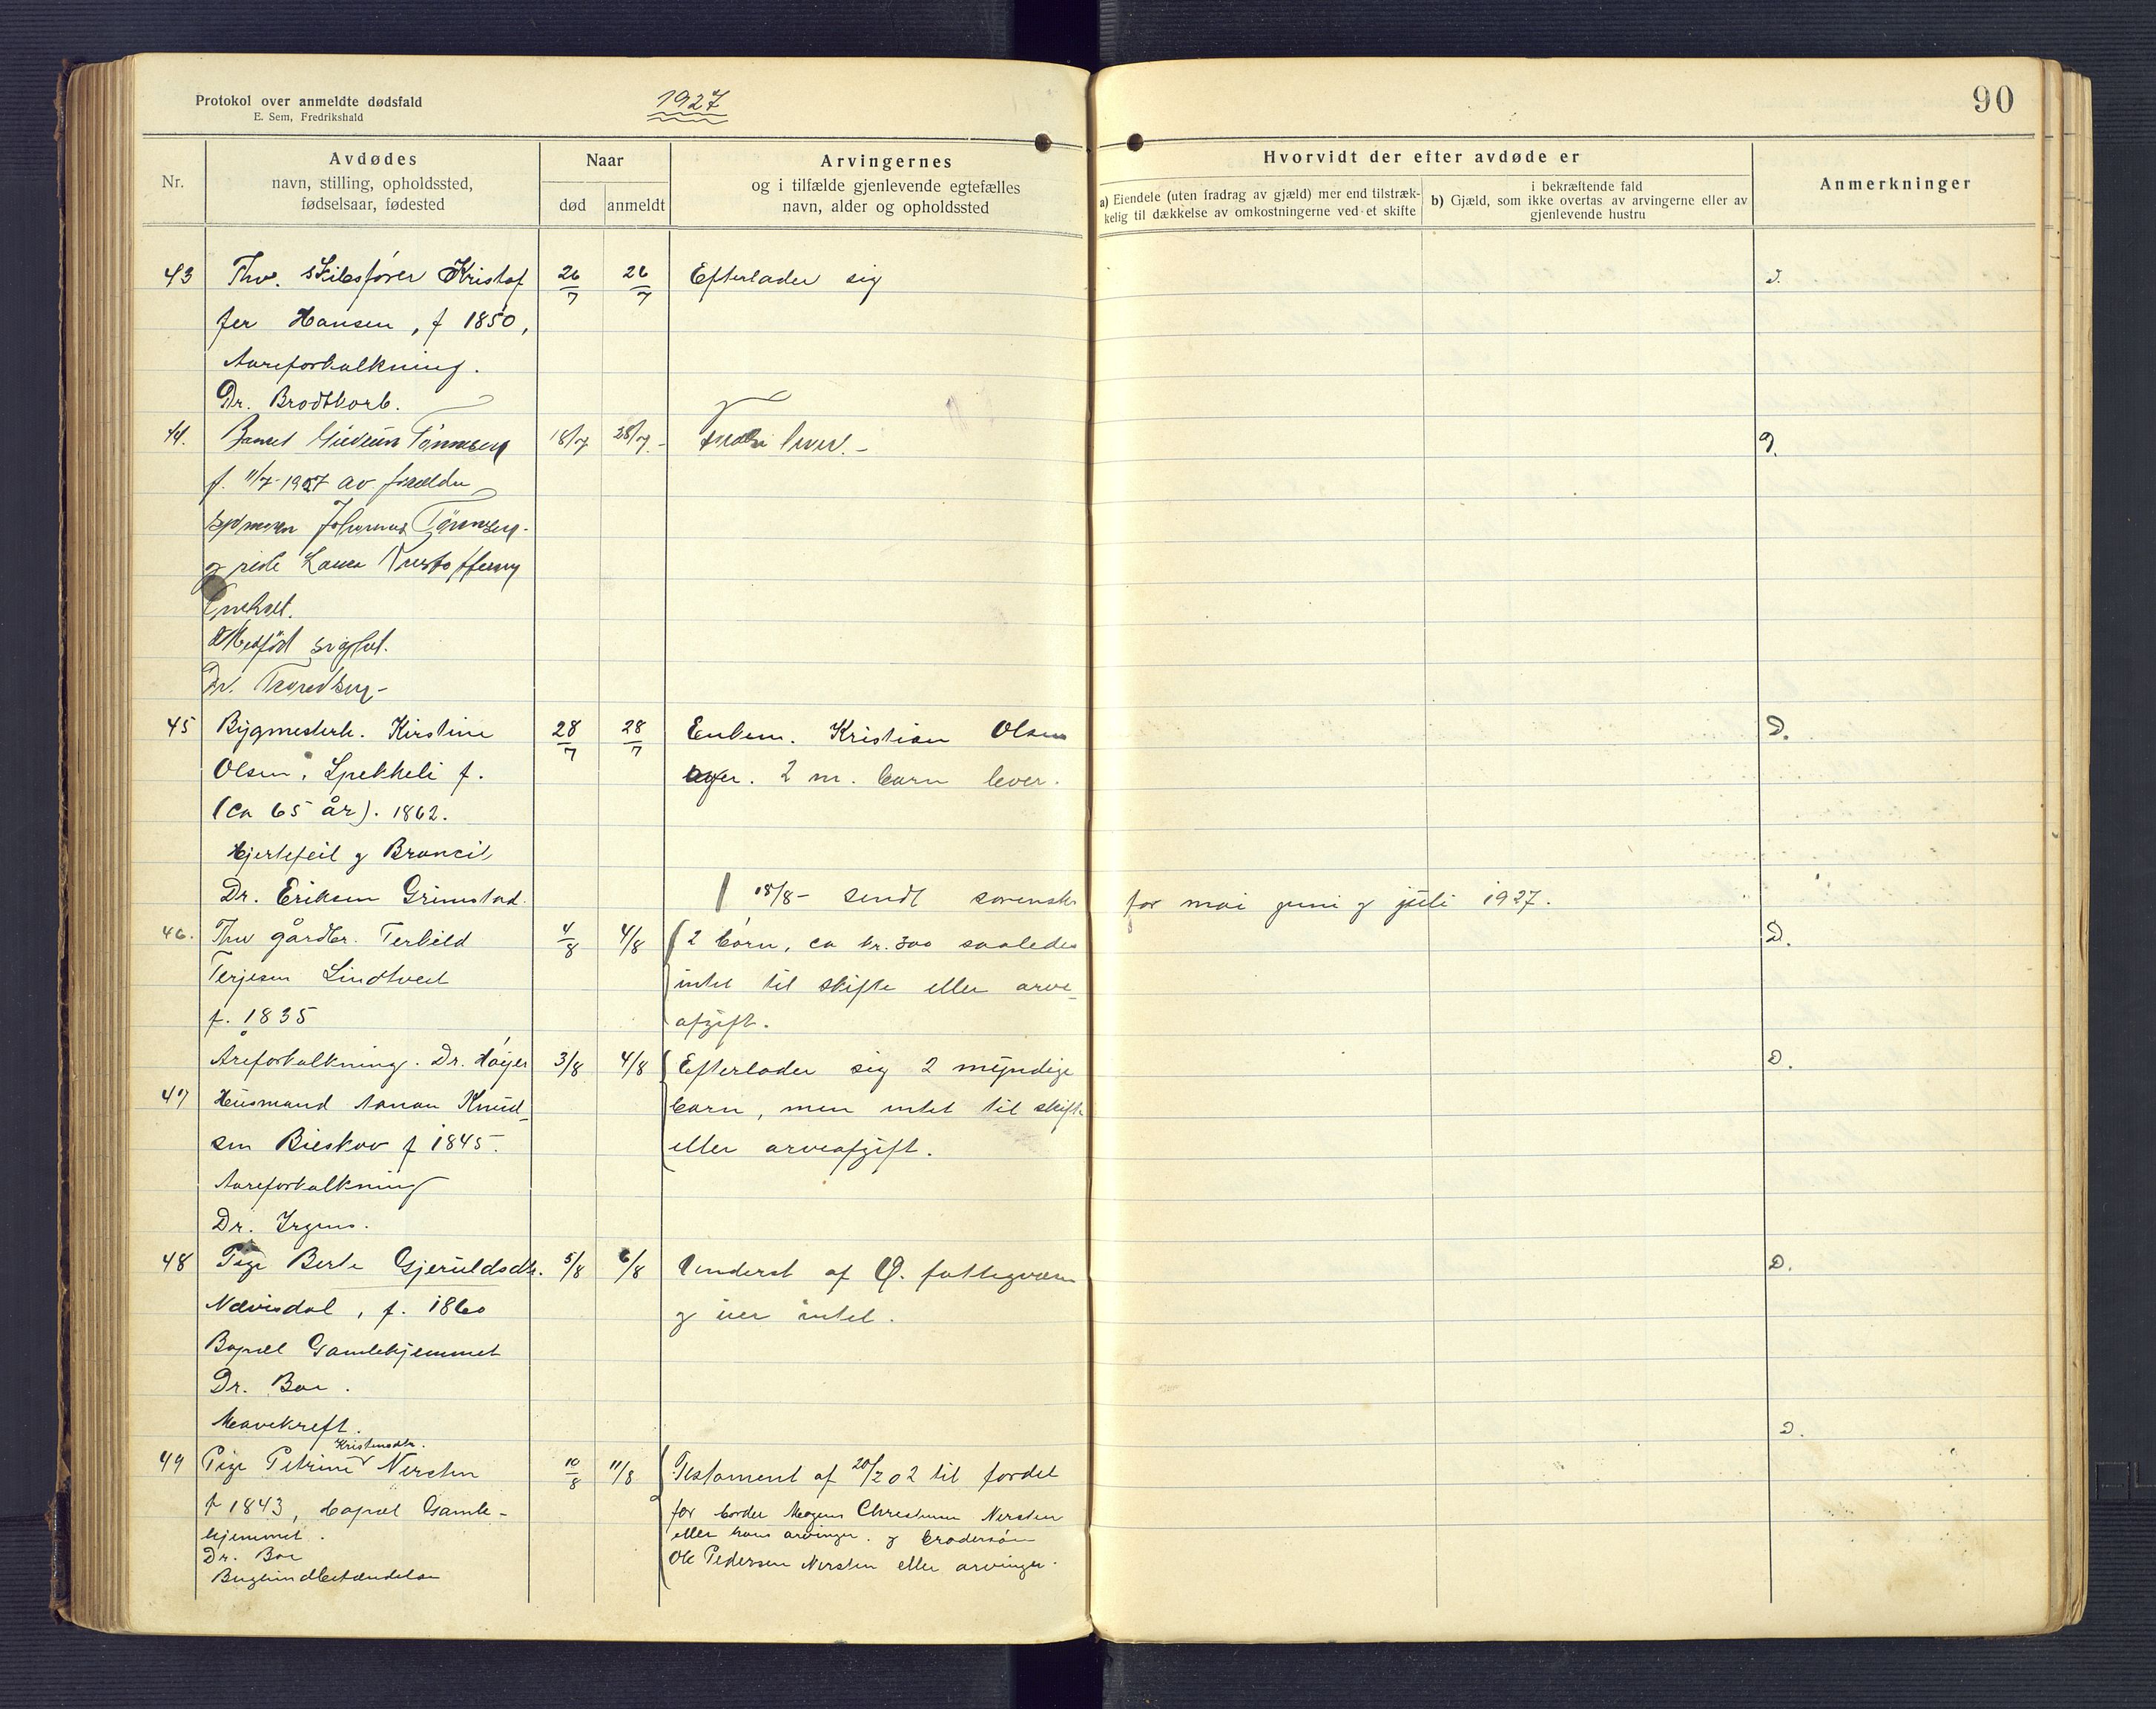 Protokol over anmeldte dødsfald
E. Sem, Fredrikshald
1927
90
Nr.
Avdødes
navn, stilling, opholdssted,
fødselsaar, fødested
Naar
død
anmeldt
Arvingernes
og i tilfælde gjenlevende egtefælles
navn, alder og opholdssted
Hvorvidt der efter avdøde er
a) Eiendele (uten fradrag av gjæld) mer end tilstræk-
kelig til dækkelse av omkostningerne ved et skifte
i bekræftende fald
b) Gjæld, som ikke overtas av arvingerne eller av
gjenlevende hustru
Anmerkninger
43 Fhv. Skibsfører Kristof 26/7 26/7 Efterlader sig D.
fer Hansen, f 1850,
Aareforkalkning.
Dr. Brodtkorb.
44. Barnet Gudrun Tønnesberg 18/7 28/7.- lever.- D.
f. 11/7-1927 av forælder
Johannes Tønnesberg.
Medfød
Dr.
45 Bygmesterk. Kirstine 28/7 28/7 Enkem. Kristian Olsen D.
Olsen, Spekkeli f. 2 m. barn lever.
(ca 65 år). 1862.
Hjertefeil og Broncit
Dr. Eriksen Grimstad.
18/8- sendt sorenskr for mai juni og juli 1927.
46. Fhv gårdbr. Terkild 4/8 4/8 2 børn, ca kr. 300 saaledes D.
Terjesen Lindtveit intet til skifte eller arve-
f. 1835 afgift.
Åreforkalkning. Dr. Høyer 3/8 4/8 Efterlader sig 2 myndige D.
47 Husmand Aanon Knud- barn, men intet til skifte
sen Bieskov f 1845. eller arveafgift.
Aareforkalkning
Dr. Irgens.
48 Pige Berte Gjeruldsdtr. 5/8 6/8 Underst af Ø. fattigvæsen D.
Nævisdal, f. 1860 og eier intet.
Bopæl Gamlehjemmet
Dr. Boe.
Mavekreft. D.
Kristensdtr.
49 Pige Petrine Nersten 10/8 11/8 Testament af 20/2 02 til fordel
f 1843, bopæl Gamle- for broder Mogens Christensen Nersten
hjemmet. eller hans arvinger. og brodersøn
Dr. Boe Ole Pedersen Nersten eller arvinger.
Bughindebetændelse